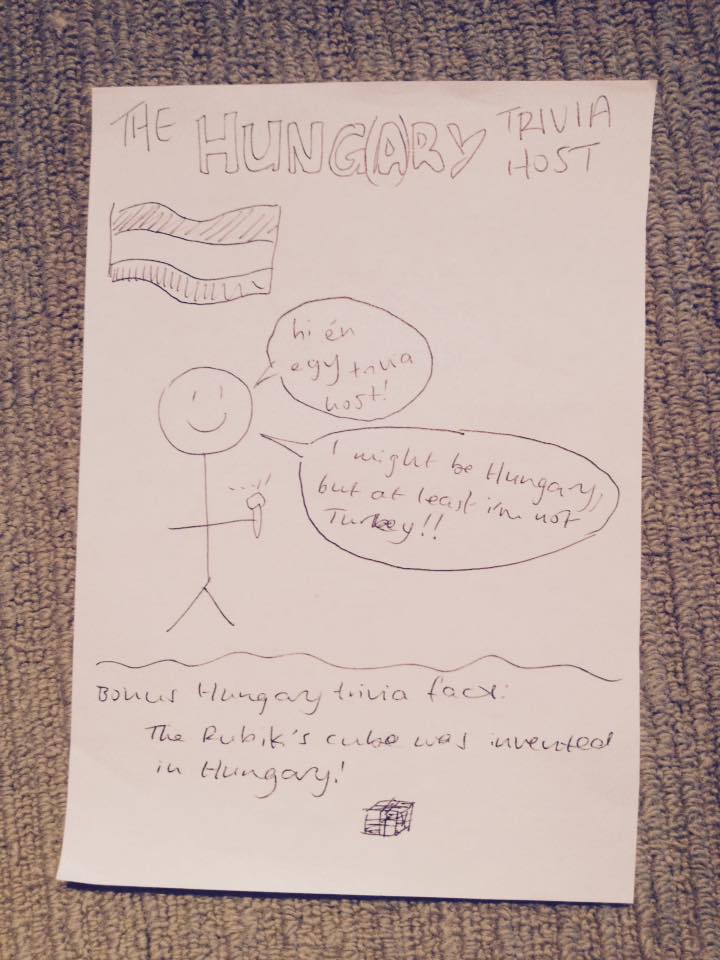 THE HUNG(A)RY TRIVIA
HOST
hi én
egy trivia
host!
I might be Hungary,
but at least i'm not
Turkey!!
Bonus Hungary trivia fact:
The Rubik's cube was invented
in Hungary!